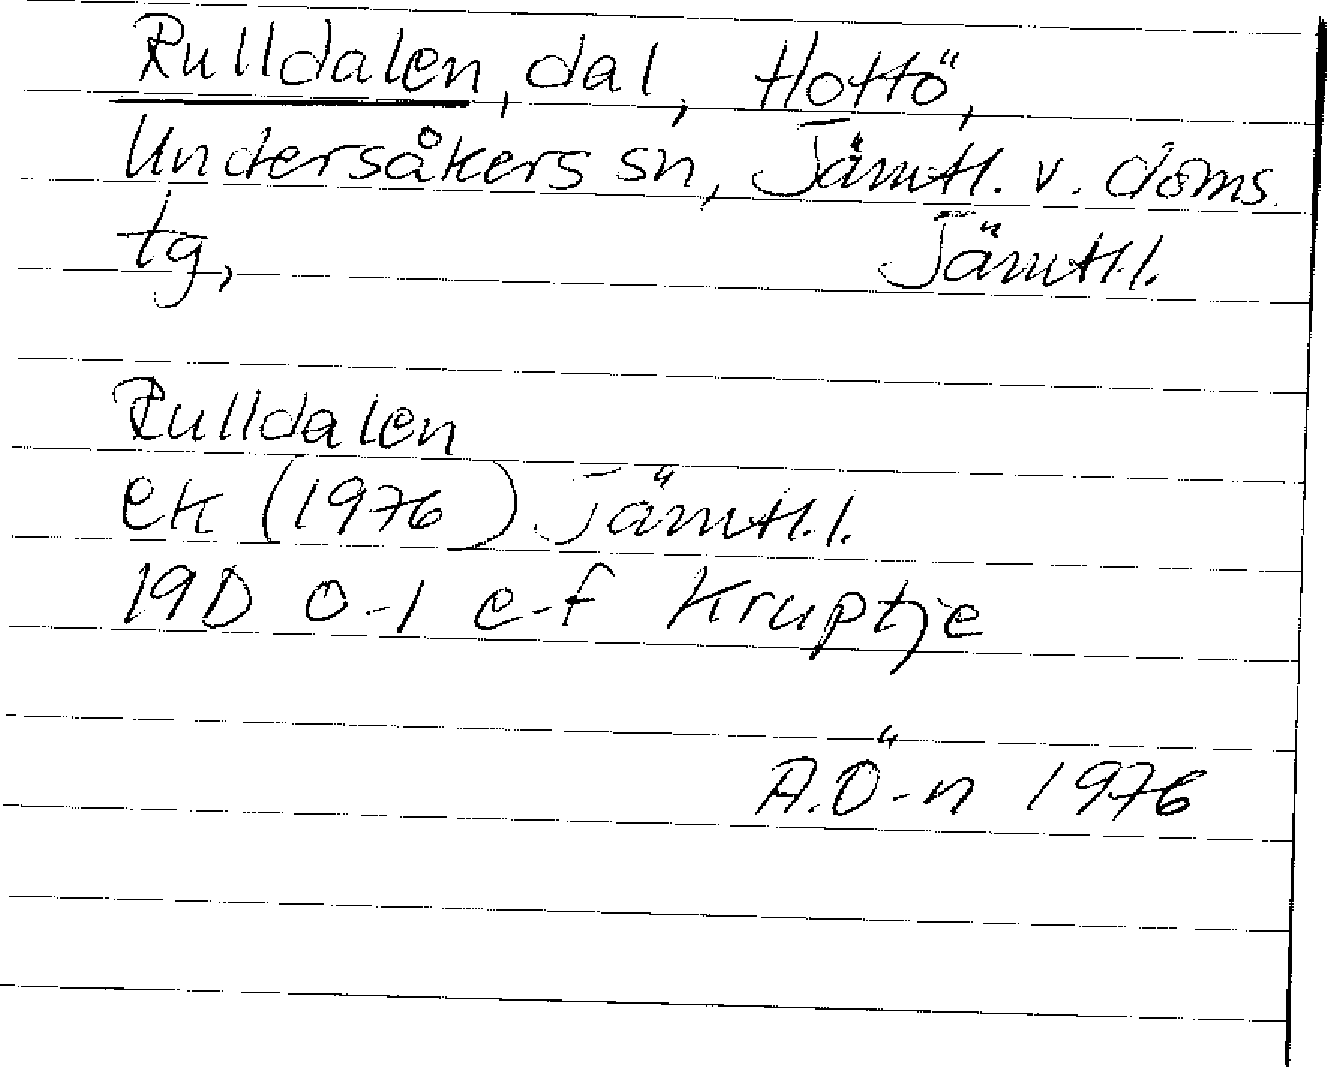 Rulldalen, dal, Hottö,
Undersåkers sn, Jämtl. v. doms.
tg, Jämtl.l.
Rulldalen
ek (1976) Jämtl.l.
19D 0-1 e-f Kruptje
A.Ö-n 1976